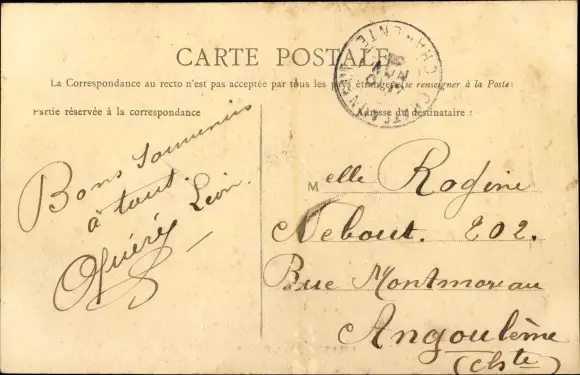 CARTE POSTALE
La Correspondance au recto n'est pas acceptée par tous les pays étrangers (se renseigner à la Poste
Partie réservée à la correspondance
Adresse du destinataire :
Bons Souvenirs
à tout.
Léon.
Melle Rogine
Nebout. 202.
Rue Montmoreau
Angoulême
(Chte)
CHARENTE